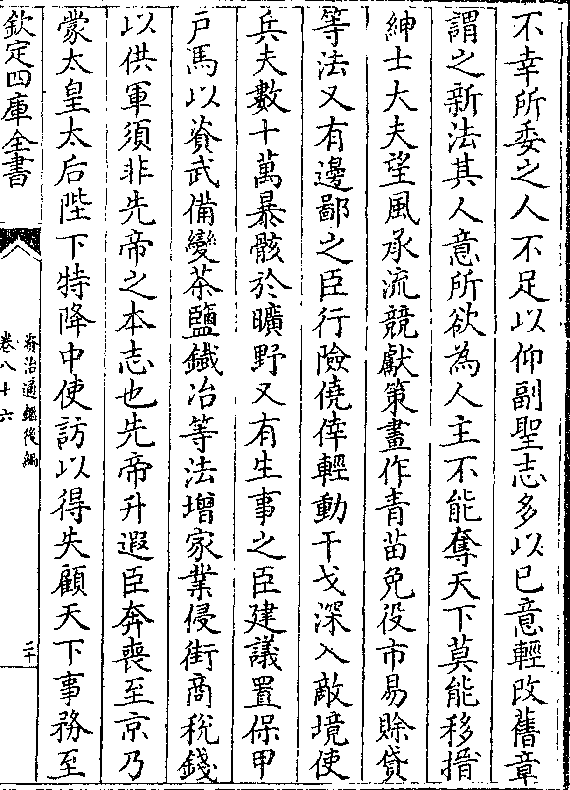 不幸所委之人不足以仰副聖志多以已意輕改舊章
謂之新法其人意所欲為人主不能奪天下莫能移搢
紳士大夫望風承流競獻策畫作青苗免役市易賒貸
等法又有邊鄙之臣行險僥倖輕動干戈深入敵境使
兵夫數十萬暴骸於曠野又有生事之臣建議置保甲
戶馬以資武備變茶鹽鐵冶等法增家業侵街商稅錢
以供軍須非先帝之本志也先帝升遐臣奔喪至京乃
蒙太皇太后陛下特降中使訪以得失顧天下事務至
欽定四庫全書
資治通鑑後編
卷八十六
二十